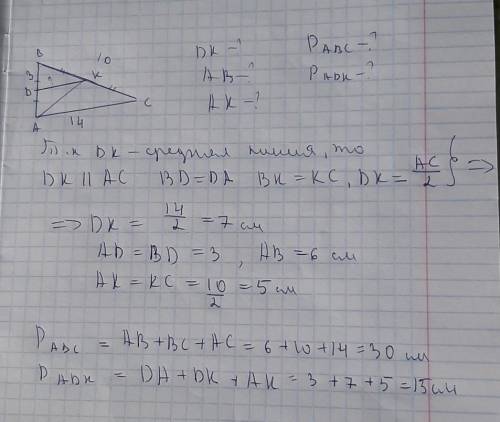 B
10
3
D
K
C
A
14
DK - ?
AB - ?
AK - ?
P ABC - ?
P ADK - ?
Т.к DK - средняя линия, то
DK || AC BD = DA BK = KC, DK = AC/2 } =>
=> DK = 14/2 = 7 см
AD = BD = 3, AB = 6 см
AK = KC = 10/2 = 5 см
P ABC = AB + BC + AC = 6 + 10 + 14 = 30 см
P ADK = DA + DK + AK = 3 + 7 + 5 = 15 см